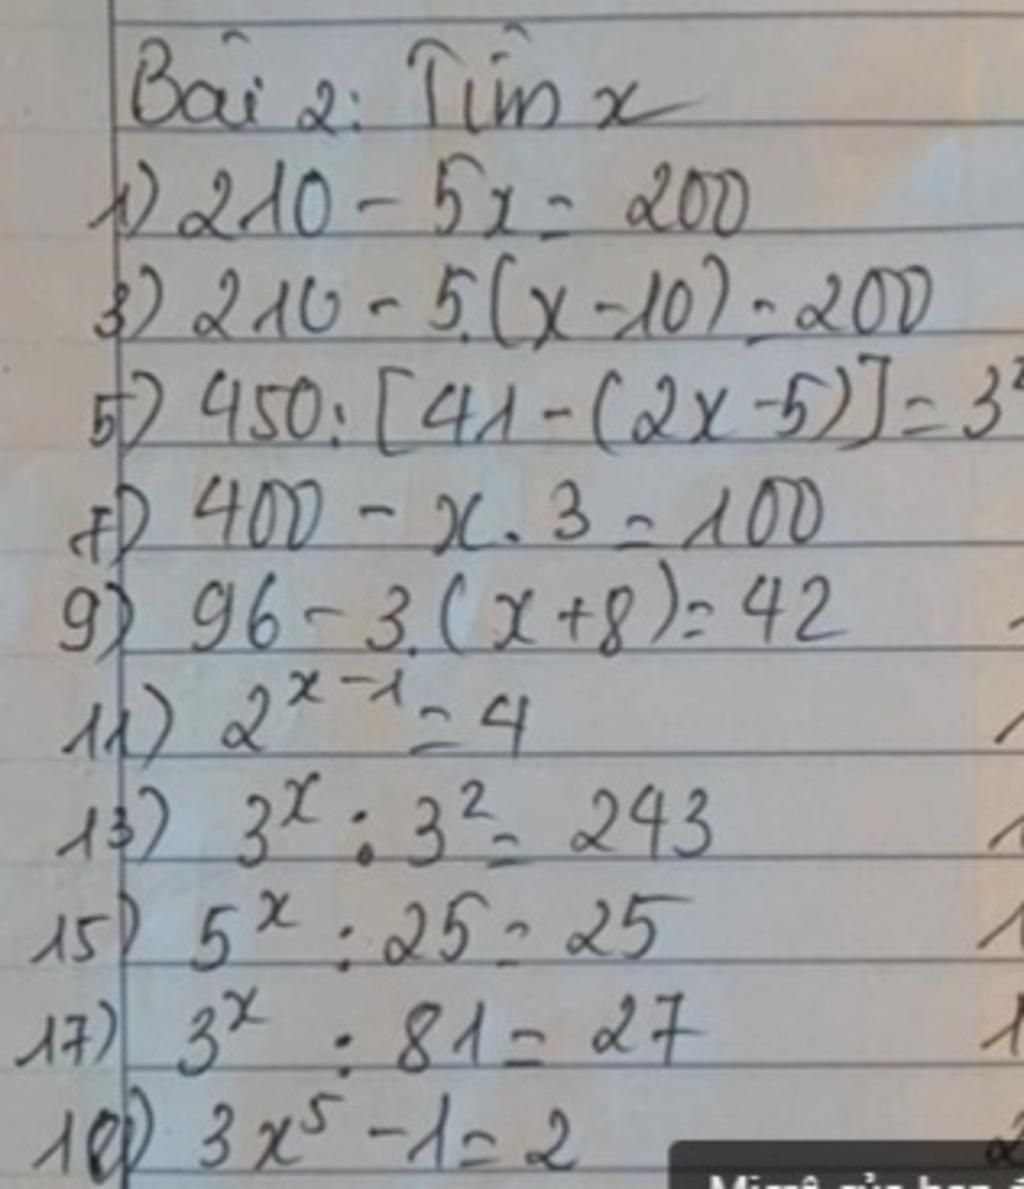 Bài 2: Tìm x
1) 210 - 5x = 200
3) 210 - 5.(x - 10) = 200
5) 450 : [41 - (2x - 5)] = 3²
7) 400 - x . 3 = 100
9) 96 - 3.(x + 8) = 42
11) 2ˣ⁻¹ = 4
13) 3ˣ : 3² = 243
15) 5ˣ : 25 = 25
17) 3ˣ : 81 = 27
3x⁵ - 1 = 2
của bạn